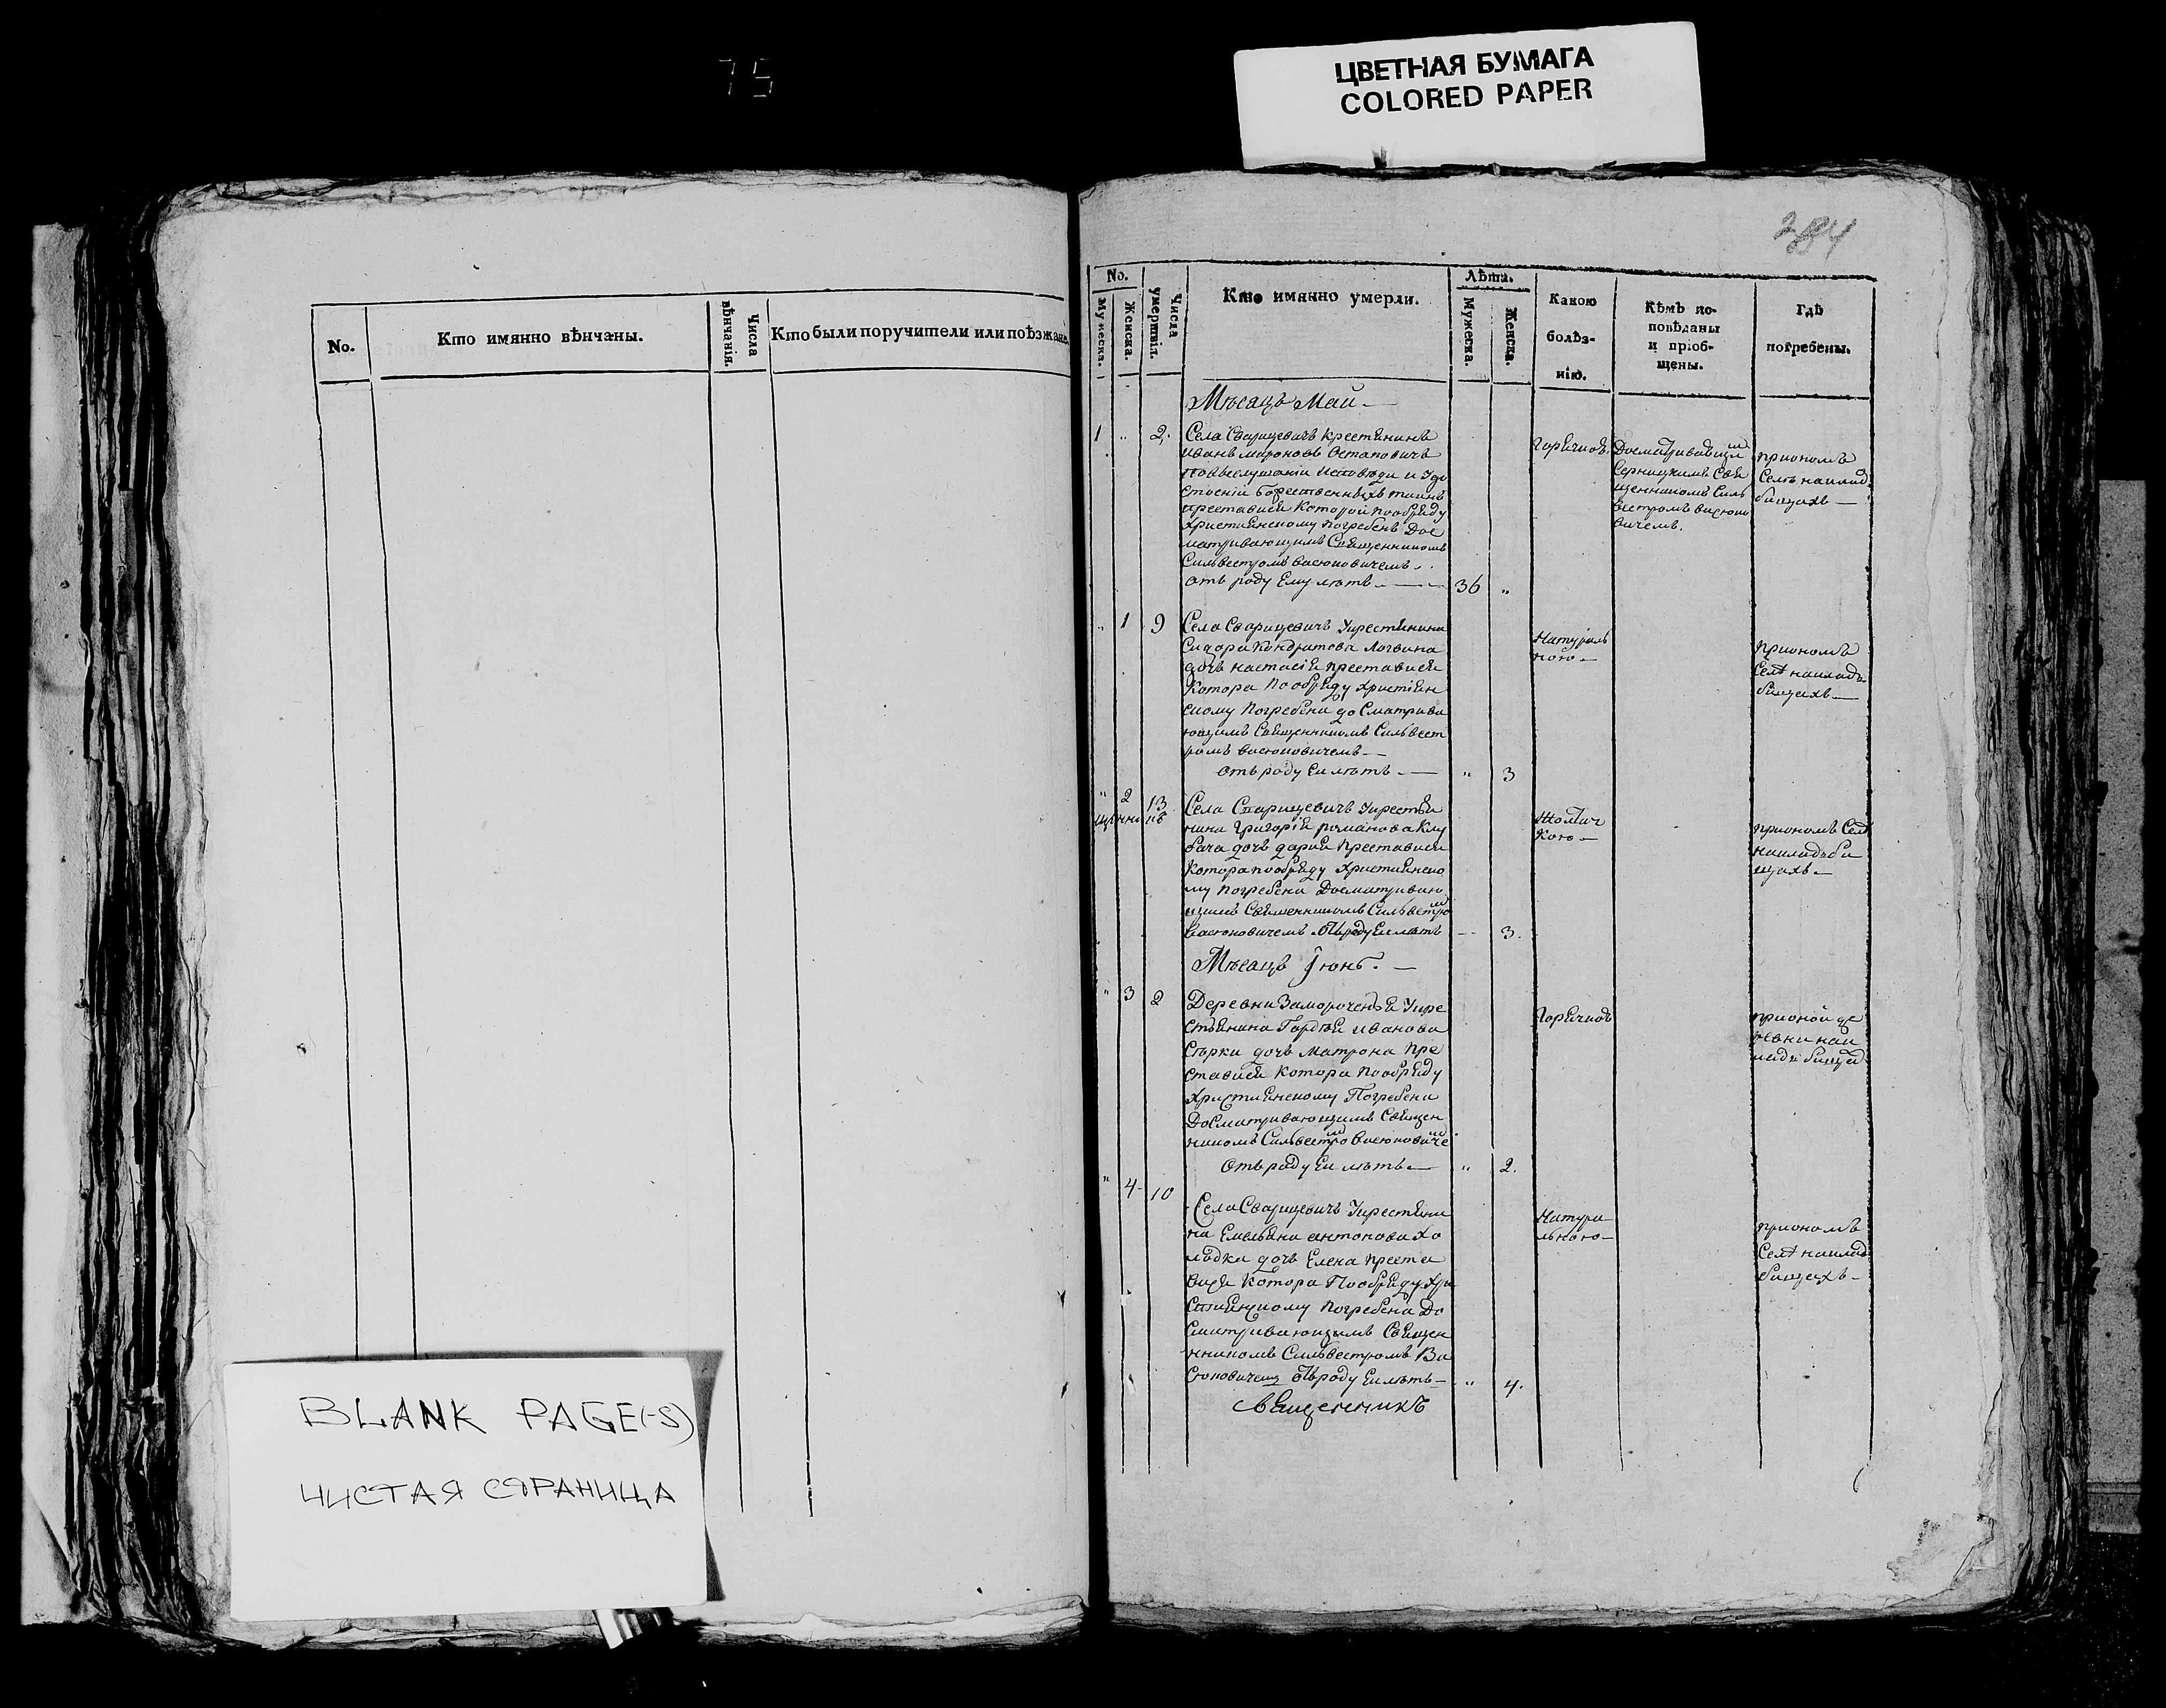 75
ЦВЕТНАЯ БУМАГА
COLORED PAPER
284
No.
Кто имянно вѣнчаны.
Числа вѣнчанія.
Кто были поручители или поѣзжане
BLANK PAGE(-S)
ЧИСТАЯ СТРАНИЦА
No.
Мужеска.
Женска.
Числа умертвія.
Кто имянно умерли.
Лѣта.
Мужеска.
Женска.
Какою
болѣз-
нію.
Кѣмъ ис-
повѣданы
и пріоб-
щены.
Гдѣ
погребены.
Мѣсяцъ Май
1 " 2.
Села Сварицевичъ крестянинъ
иванъ мироновъ Остаповичъ
исповѣди и удо
стоеніи божественныхъ таинъ
преставися Которой пообряду
християнскому погребенъ Дос
матривающимъ Священникомъ
Сильвестромъ васюковичемъ
отъ роду Ему лѣтъ 36 "
Горячкою
Священникомъ Силь
вестромъ васюко
вичемъ.
приономъ
Селѣ наклад
бищахъ
" 1 9
Села Сварицевичъ Крестянина
Сидора Кондратова Логвина
дочь настасія преставися
Котора пообряду христіян
скому погребена досматрива
ющимъ Священникомъ Сильвест
ромъ васюковичемъ
отъ роду Еи лѣтъ " 3
Натураль
ною
приономъ
Селѣ наклад
бищахъ
" 2 13
Села Сварицевичъ Крестья
нина григорія романова Клу
бача дочь дария преставися
Котора пообряду християнско
му погребена Досматриваю
щимъ Священникомъ Сильвестром
Васюковичемъ Отъ роду Еи лѣтъ 3.
приономъ Селѣ
накладьби
щахъ
Мѣсяцъ Iюнь.
" 3 2
Деревни Заморочення Кре
стьянина Гордѣя иванова
Сѣрки дочь Матрона пре
ставися Котора пообряду
християнскому Погребена
Досматривающимъ Священ
никомъ Сильвестром Васюковичем
Отъ роду Еи лѣтъ " 2.
Горячкою
прионой де
ревни нак
ладьбищах
" 4 10
Села Сварицевичъ Крестяни
на Емельяна антонова Хо
лодка дочь Елена преста
вися Котора Пообряду хри
стиянскому погребена До
сматривающымъ Священ
никомъ Сильвестромъ Ва
сюковичем Отъ роду Еи лѣтъ " 4.
Натура
льною
приономъ
Селѣ наклад
бищахъ
Священникъ